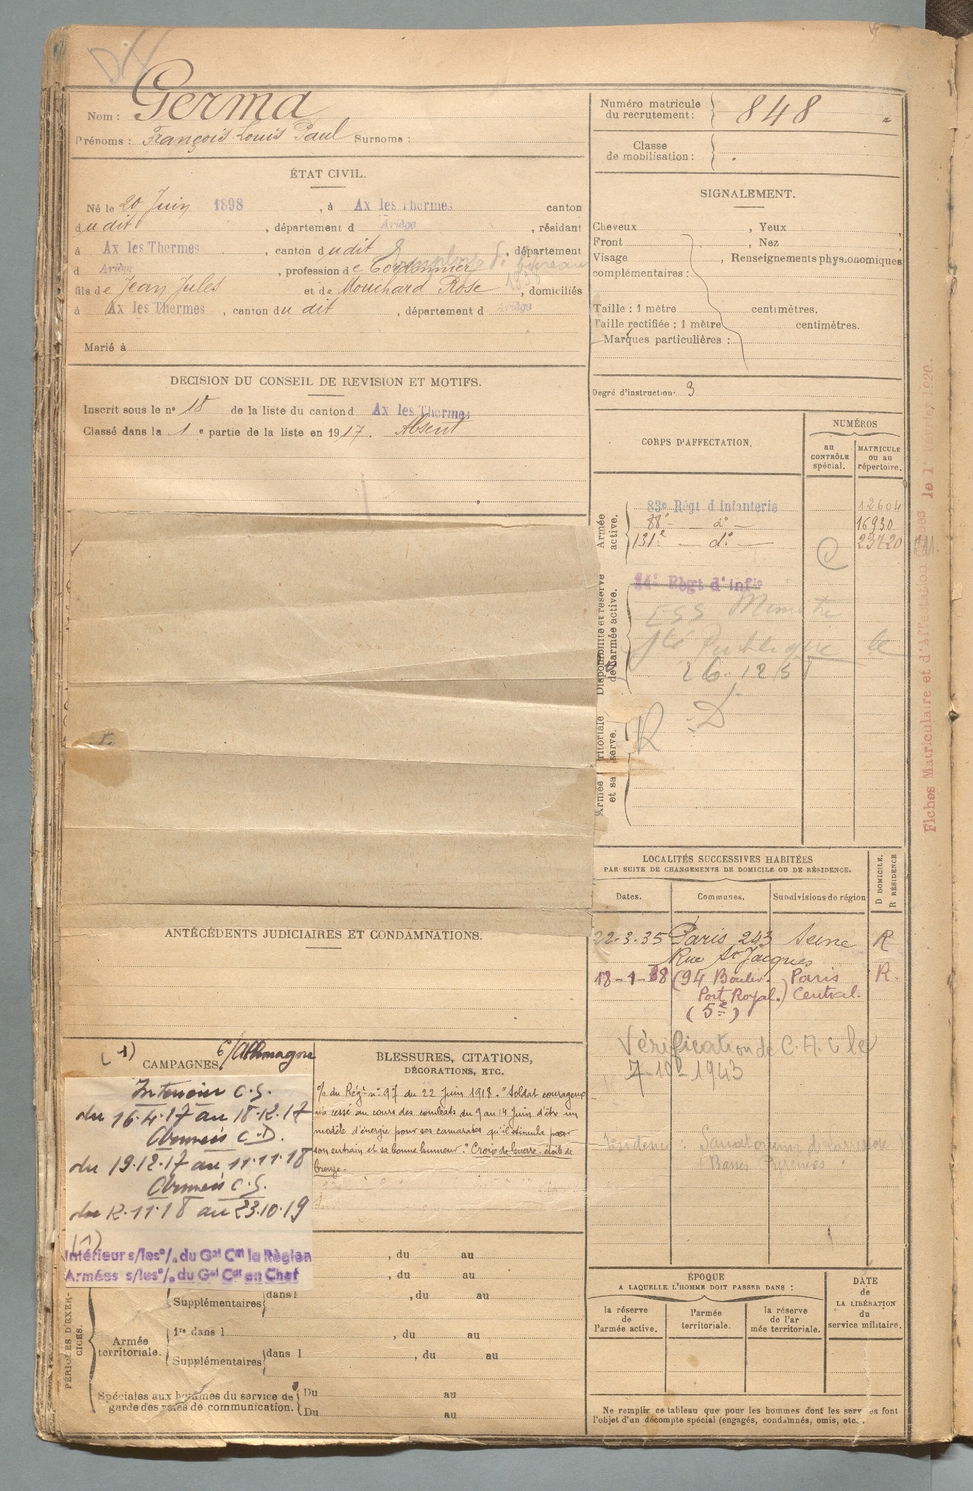 Nom : Germa
Prénoms : François Louis Paul Surnoms :
ÉTAT CIVIL.
Né le 20 Juin 1898, à Ax les Thermes canton
dudit, département d Ariège, résidant
à Ax les Thermes, canton dudit, département
d Ariège, profession de Cordonnier
employé de bureau
1938
fils de Jean Jules et de Mouchard Rose, domiciliés
à Ax les Thermes, canton du dit, département d Ariège
Marié à
DECISION DU CONSEIL DE REVISION ET MOTIFS.
Inscrit sous le n° 18 de la liste du canton d Ax les Thermes
Classé dans la 1e partie de la liste en 1917. Absent
ANTÉCÉDENTS JUDICIAIRES ET CONDAMNATIONS.
(1) C/Allemagne
CAMPAGNES
Intérieur C.S.
du 16.4.17 au 18.12.17
Armées C.D.
du 19.12.17 au 11.11.18
Armées C.S.
du 12.11.18 au 23.10.19
(1)
Intérieur s/les o/. du Gal Ct la Région
Armées s/les o/. du Gal Ct en Chef
BLESSURES, CITATIONS,
DÉCORATIONS, ETC.
O/. du Régt n° 97 du 22 Juin 1918. "Soldat courageux
n'a cessé au cours des combats du 9 au 14 Juin d'être un
modèle d'énergie pour ses camarades qu'il stimula par
son entrain et sa bonne humeur." Croix de Guerre étoile de
bronze.
, du au
, du au
Supplémentaires dans l , du au
PÉRIODES D'EXERCICES.
Armée territoriale.
1re dans l , du au
Supplémentaires dans l , du au
Spéciales aux hommes du service de Du au
garde des voies de communication. Du au
Numéro matricule
du recrutement : 848
Classe
de mobilisation :
SIGNALEMENT.
Cheveux , Yeux
Front , Nez
Visage , Renseignements physionomiques
complémentaires :
Taille : 1 mètre centimètres.
Taille rectifiée : 1 mètre centimètres.
Marques particulières :
Degré d'instruction : 3
CORPS D'AFFECTATION.
NUMÉROS
au CONTRÔLE spécial.
MATRICULE OU AU répertoire.
Armée active.
83e Régt d'infanterie 12604
88e d° 16930
131e d° 23720
Disponibilité et réserve de l'armée active.
14e Régt d'Infie
ESS Ministre
Sté Publique le
26-12-51
Armée territoriale et sa réserve.
R. D
LOCALITÉS SUCCESSIVES HABITÉES
PAR SUITE DE CHANGEMENTS DE DOMICILE OU DE RÉSIDENCE.
Dates. Communes. Subdivisions de région
D DOMICILE. R RÉSIDENCE
22-3-35 Paris 243 Seine R
Rue St Jacques
18-1-38 (94 Boulev. Paris R.
Port Royal.) Central.
(5e)
Vérification de C.A.C le
7-10-1943
Résidence : Sanatorium
(Basses Pyrénées)
EPOQUE
A LAQUELLE L'HOMME DOIT PASSER DANS :
la réserve de l'armée active.
l'armée territoriale.
la réserve de l'armée territoriale.
DATE
de
LA LIBÉRATION
du
service militaire.
Ne remplir ce tableau que pour les hommes dont les services font
l'objet d'un décompte spécial (engagés, condamnés, omis, etc.)